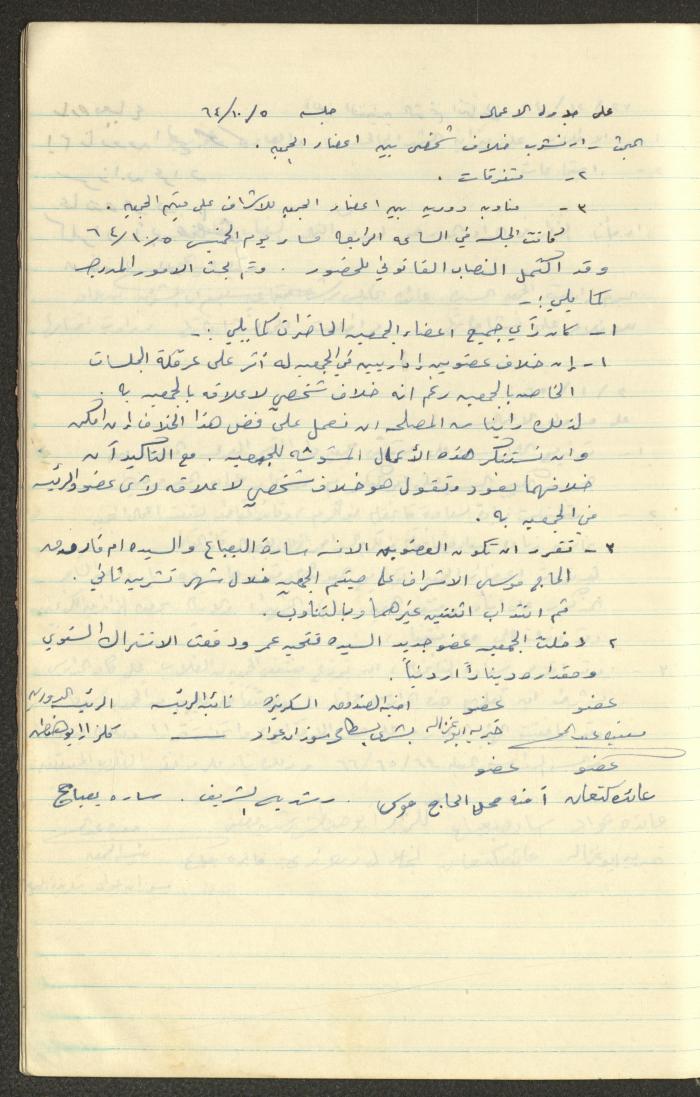 على جدول الاعمال جلسه ٥/١٠/٦٤
البحث ١- نشوب خلاف شخصي بين اعضاء الجمعيه .
٢- متفرقات .
٣- مناوبه دوريه بين اعضاء الجمعيه للاشراف على ميتم الجمعيه .
كانت الجلسه في الساعه الرابعه مساء يوم الخميس ٥/١٠/٦٤
وقد اكتمل النصاب القانوني للحضور . وتم بحث الامور المدرجه
كما يلي :-
١- كان رأي جميع اعضاء الجمعيه الحاضرات كما يلي :-
١- إن خلاف عضوين إداريين في الجمعيه له أثر على عرقلة الجلسات
الخاصه بالجمعيه رغم انه خلاف شخصي لا علاقه بالجمعيه به .
لذلك رأينا من المصلحه ان نعمل على فض هذا الخلاف إن امكن
وان نستنكر هذه الأعمال المشوشه للجمعيه . مع التأكيد أن
خلافهما نعود ونقول هو خلاف شخصي لا علاقه لأي عضو والرئيسه
في الجمعيه به .
٣- تقرر ان تكون العضوين الانسه ساره البعباع والسيده ام فاروق
الحاج موسى الاشراف على ميتم الجمعيه خلال شهر تشرين ثاني .
ثم انتداب اثنتين غيرهما وبالتناوب .
٢ دخلت الجمعيه عضو جديد السيده فتحيه عمر ودفعت الاشتراك السنوي
ومقداره ديناراً اردنياً .
عضو عضو امينه الصندوق السكرتيره نائبة الرئيسه الرئيسه
خيريه ابو غزاله بشرى بسطامي سوزان عواد
عضو عضو
عائده كنعان آمنه الحاج موسى . رشديه الشريف . ساره بعباع